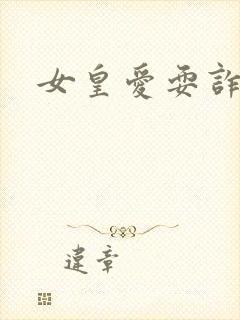 女皇愛耍詐
違章